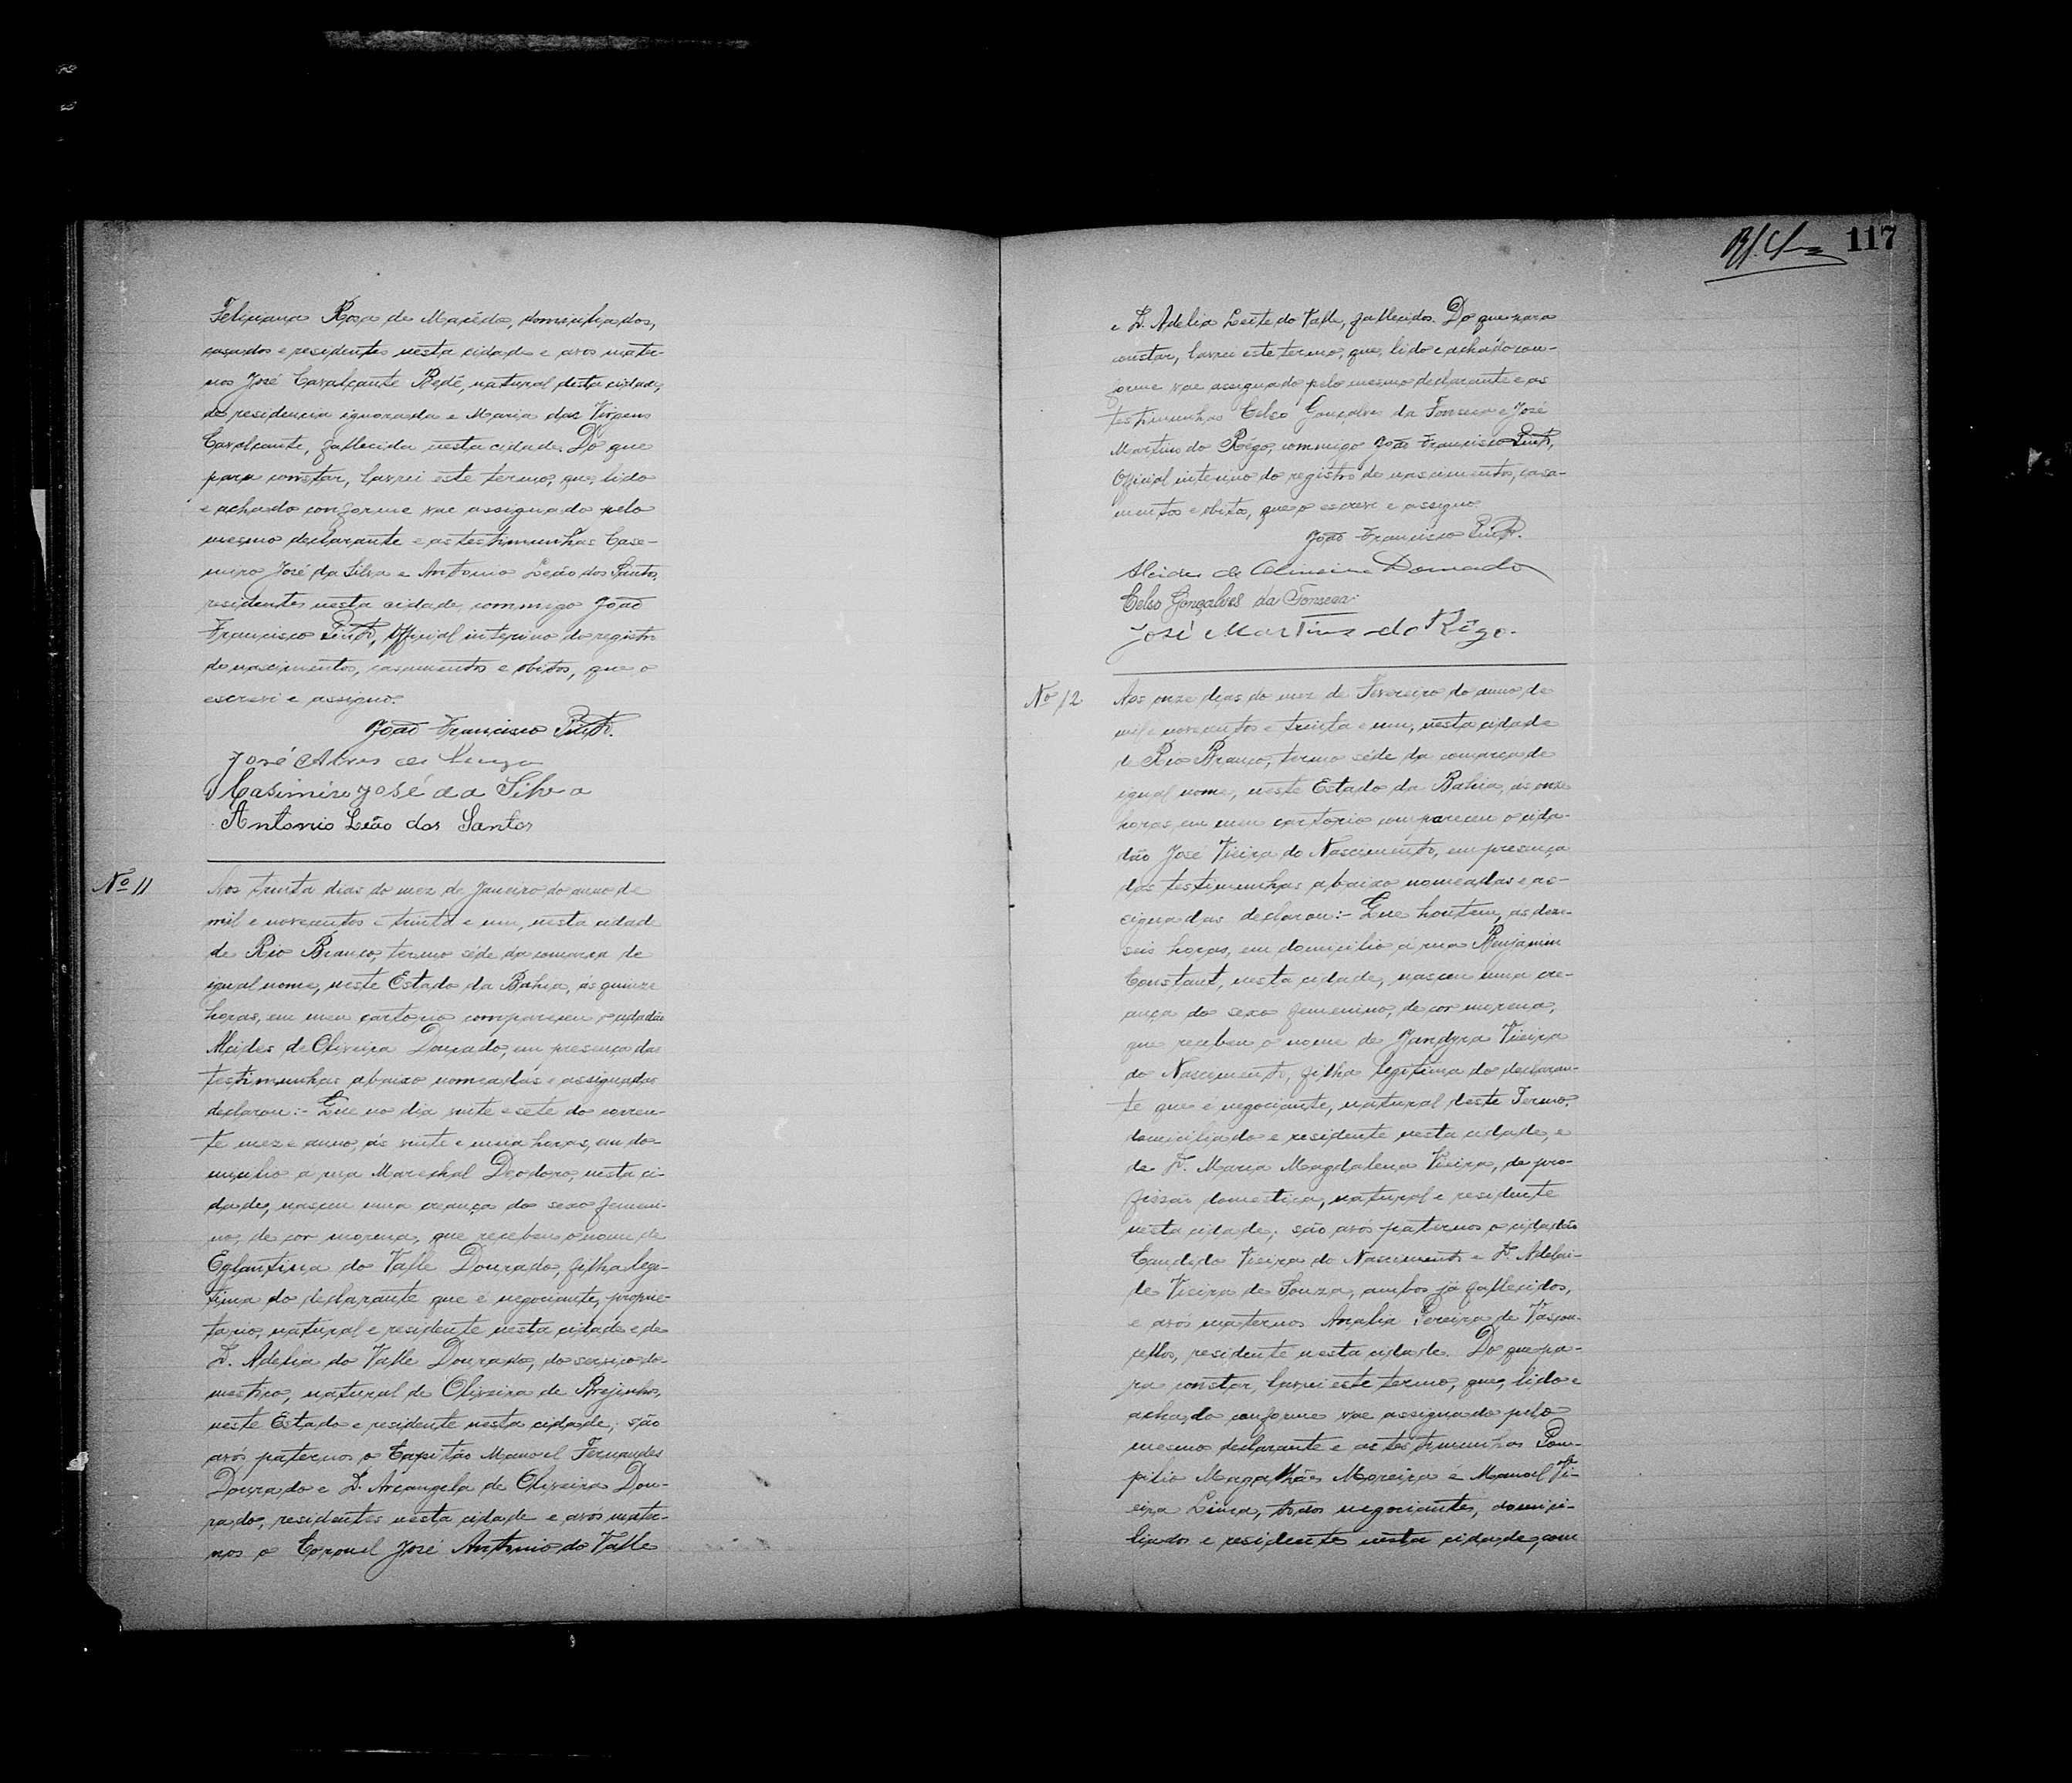 Feliciana Rosa de Macêdo, domiciliados,
casados e residentes nesta cidade e avos mater-
nos José Cavalcante Bedê, natural desta cidade,
de residencia ignorada e Maria das Virgens
Cavalcante, fallecida nesta cidade. Do que
para constar, lavrei este termo, que, lido
e achado conforme vae assignado pelo
mesmo declarante e as testimunhas Case-
miro José da Silva e Antonio Leão dos Santos,
residentes nesta cidade, commigo João
Francisco Pinto, Official interino do registro
de nascimentos, casamentos e obitos, que o
escrevi e assigno.
João Francisco Pinto.
José Alves de
Casimiro José da Silva
Antonio Leão dos Santos
Nº 11
Aos trinta dias do mez de Janeiro do anno de
mil e novecentos e trinta e um, nesta cidade
de Rio Branco, termo séde da comarca de
igual nome, neste Estado da Bahia, ás quinze
horas, em meu cartorio compareceu o cidadão
Alcides de Oliveira Dourado, em presença das
testimunhas abaixo nomeadas e assignadas
declarou:- Que no dia vinte e sete do corren-
te mez e anno, ás vinte e meia horas, em do-
micilio a rua Marechal Deodoro, nesta ci-
dade, nasceu uma creança do sexo femeni-
no, de cor morena, que recebeu o nome de
Eglantina do Valle Dourado, filha legi-
tima do declarante que é negociante, proprie-
tario, natural e residente nesta cidade e de
D. Adelia do Valle Dourado, do serviço do-
mestico, natural de Oliveira de Brejinho,
neste Estado e residente nesta cidade; são
avós paternos o Capitão Manoel Fernandes
Dourado e D. Arcangela de Oliveira Dou-
rado, residentes nesta cidade e avós mater-
nos o Coronel José Antonio do Valle
117
e D. Adelia Leite do Valle, fallecidos. Do que para
constar, lavrei este termo, que, lido e achado con-
forme vae assignado pelo mesmo declarante e as
testimunhas Celso Gonçalves da Fonseca e José
Martins do Rêgo, commigo João Francisco Pinto,
Official interino do registro de nascimentos, casa-
mentos e obitos, que o escrevi e assigno
João Francisco Pinto.
Alcides de Oliveira Dourado
Celso Gonçalves da Fonseca
José Martins do Rêgo.
Nº 12
Aos onze dias do mez de Fevereiro do anno de
mil e novecentos e trinta e um, nesta cidade
de Rio Branco, termo séde da comarca de
igual nome, neste Estado da Bahia, ás onze
horas, em meu cartorio compareceu o cida-
dão José Vieira do Nascimento, em presença
das testimunhas abaixo nomeadas e as-
signadas declarou:- Que hontem, as deze-
seis horas, em domicilio á rua Benjamim
Constant, nesta cidade, nasceu uma cre-
ança do sexo femenino, de cor morena,
que recebeu o nome de Jandyra Vieira
do Nascimento, filha legitima do declaran-
te que é negociante, natural deste Termo,
domiciliado e residente nesta cidade, e
de D. Maria Magdalena Vieira, de pro-
fissão domestica, natural e residente
nesta cidade; são avós paternos o cidadão
Candido Vieira do Nascimento e D. Adelai-
de Vieira de Souza, ambos já fallecidos,
e avós maternos Analia Pereira de Vascon-
cellos, residente nesta cidade. Do que pa-
ra constar, lavrei este termo, que, lido e
achado conforme vae assignado pelo
mesmo declarante e as testimunhas Pom-
pilio Magalhães Moreira e Manoel Vi-
eira Lima, todos negociantes, domici-
liados e residentes nesta cidade, com